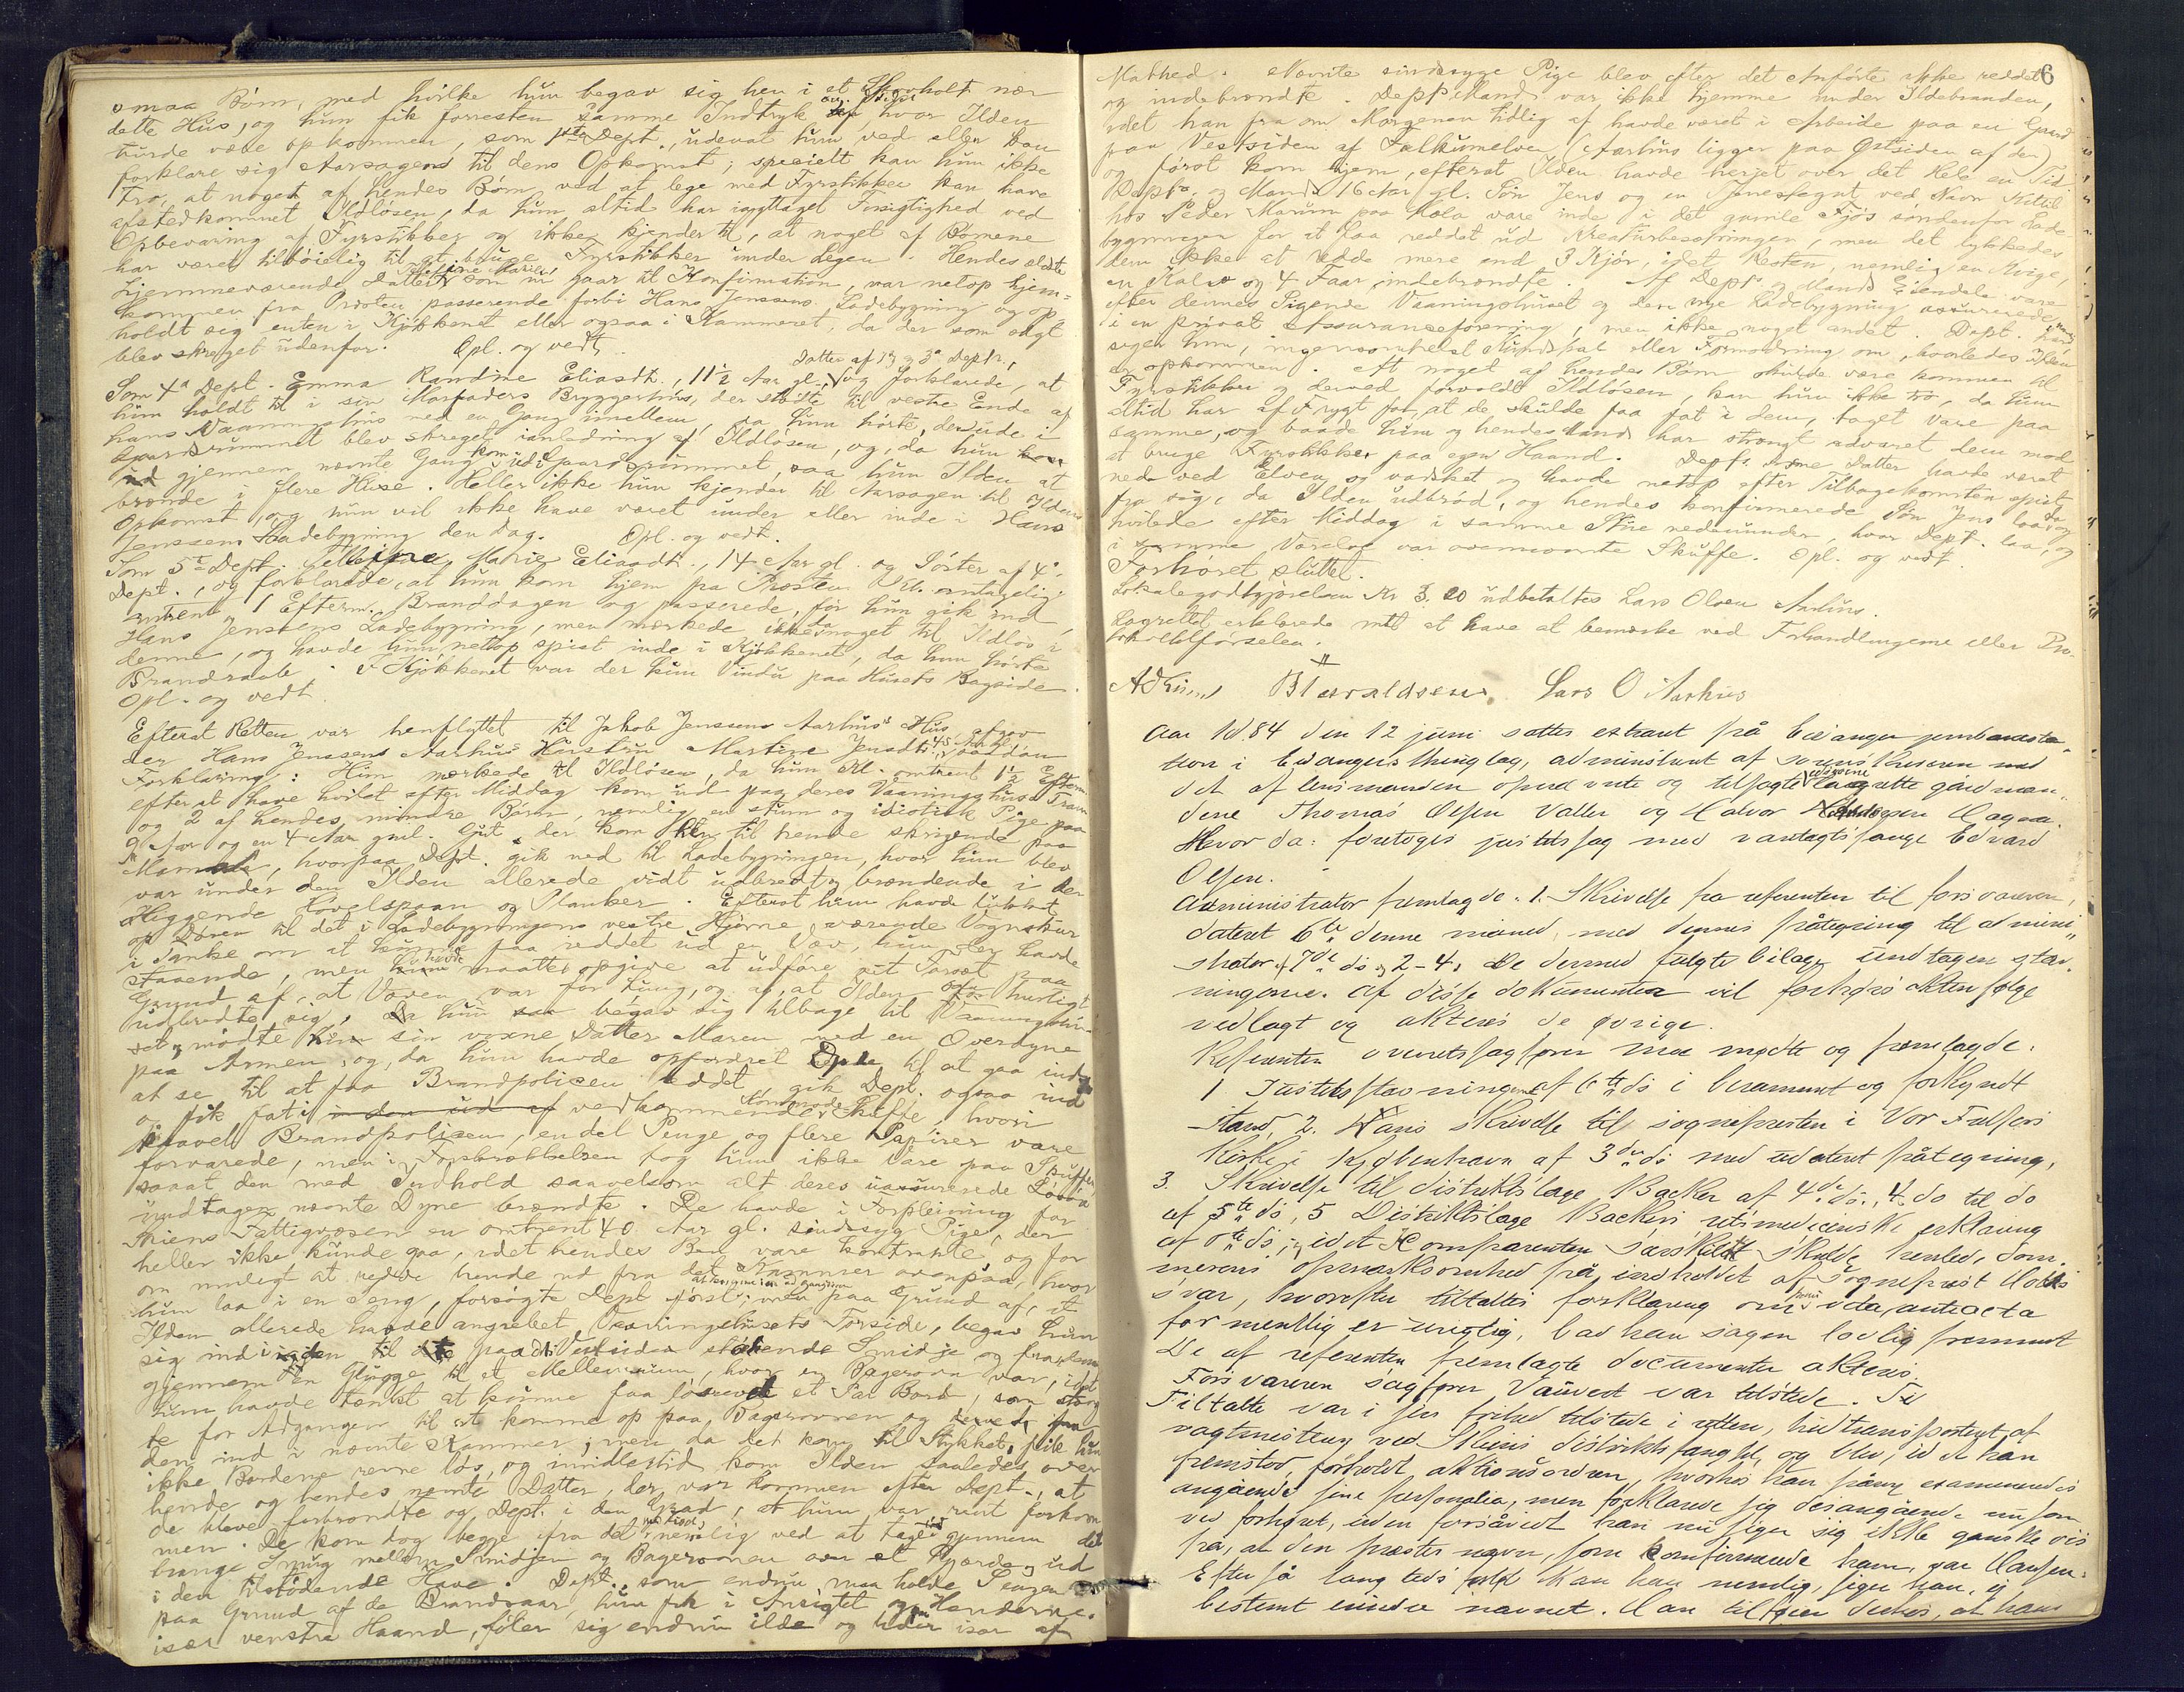 smaa Børn, med hvilke hun begav sig hen i et Skovholt nær
dette Hus, og hun fik forresten samme Indtryk hvor Ilden
turde være opkommen, som 1ste Dept., udenat hun ved eller kan
forklare sig Aarsagen til dens Opkomst; specielt kan hun ikke
tro, at noget af hendes Børn ved at lege med Fyrstikker kan have
afstedkommet Ildløsen, da hun altid har iagttaget Forsigtighed ved
Opbevaring af Fyrstikker og ikke kjender til, at noget af Børnene
har været tilbøielig til at bruge Fyrstikker under Legen. Hendes ældste
hjemmeværende Datter som nu gaar til Konfirmation, var netop hjem-
kommen fra Præsten passerende forbi Hans Jenssens Ladebygning og op-
holdt sig enten i Kjøkkenet eller ogsaa i Kammeret, da der som sagt
blev skreget udenfor. Opl. og vedt.
Datter af 1ste og 3de Dept.,
Som 4de Dept. Emma Randine Eliasdt., 11½ Aar gl., og forklarede, at
hun holdt til i sin Morfaders Bryggerhus, der stødte til vestre Ende af
hans Vaaningshus med en Gang imellem, da hun hørte, derude i
Gaardsrummet blev skreget i anledning af Ildløsen, og, da hun
gjennem nævnte Gang kom ud i Gaardsrummet, saa hun Ilden at
brænde i flere Huse. Heller ikke hun kjender til Aarsagen til Ildens
Opkomst, og hun vil ikke have været under eller inde i Hans
Jenssens Ladebygning den Dag. Opl. og vedt.
Som 5te Dept. Marie Eliasdt., 14 Aar gl. og Søster af 4de
Dept., og forklarede, at hun kom hjem fra Præsten Kl. antagelig
omtrent 1 Efterm. Branddagen og passerede, før hun gik ind,
Hans Jenssens Ladebygning, men mærkede da ikke noget til Ildløs i
denne, og havde hun netop spist inde i Kjøkkenet, da hun hørte
Brandraab. I Kjøkkenet var der kun Vindu paa Husets Bagside.
Opl. og vedt.
Efterat Retten var henflyttet til Jakob Jenssens Aarhus's Hus afgav
der Hans Jenssens Aarhus's Hustru Martine Jensdt., saadan
Forklaring: Hun mærkede til Ildløsen, da hun Kl. omtrent 1½ Efterm.
efter at have hvilet efter Middag kom ud paa deres Vaaningshuses Tram
og 2 af hendes mindre Børn, nemlig en stum og idiotisk Pige paa
9 Aar og en 4 Aar gml. Gut, der kom hen til hende skrigende paa
hvorpaa Dept. gik ned til Ladebygningen, hvor hun blev
var under den Ilden allerede vidt udbredt og brændende i der
liggende Høvelspaan og Planker. Efterat hun havde lukket
op Døren til det i Ladebygningens vestre Hjørne værende Vognskur
i Tanke om at kunne faa reddet ud en Væv, hun der havde
staaende, men maatte opgive at udføre sit Forsæt paa
Grund af, at Væven var for tung, og af, at Ilden hurtigt
udbredte sig, begav sig tilbage til Vaaningshu-
set, mødte sin voxne Datter Maren med en Overdyne
paa Armen, og, da hun havde opfordret til at gaa ind
at se til at faa Brandpolicen reddet, gik Dept. ogsaa ind
og fik fat i vedkommende Kommode Skuffe, hvori
saavel Brandpolicen, en del Penge og flere Papirer vare
forvarede, men i Forskrækkelsen tog hun ikke Vare paa Skuffen,
saaat den med Indhold saavelsom alt deres uassurerede Løsøre
undtagen nævnte Dyne brændte. De havde i Forpleining for
Skiens Fattigvæsen en omtrent 40 Aar gl. sindssyg Pige, der
heller ikke kunde gaa, idet hendes Ben vare kontrakte, og for
om muligt at redde hende ud fra det Kammer ovenpaa, hvor
hun laa i en Seng, forsøgte Dept. først, men paa Grund af, at
Ilden allerede havde angrebet Vaaningshusets Forside, begav hun
sig ind i den til paa Vestsiden stødende Smidje og fra den
gjennem en Glugge til et Mellemrum, hvor en Bagerovn var, idet
hun havde tænkt at kunne faa løsrevet et Par Bord, som stæng-
te for Adgangen til at komme op paa Bagerovnen og derved fra
den ind i nævnte Kammer; men da det kom til Stykket, fik hun
ikke Bordene revne løs, og imidlertid kom Ilden saaledes over
hende og hendes nævnte Datter, der var kommen efter Dept., at
de bleve forbrændte og Dept. i den Grad, at hun var rent forkom-
men. De kom dog begge fra det med Livet, nemlig ved at tage gjennem det
trange Smug mellem Smidjen og Bagerovnen over et Gjærde ud
i den tilstødende Have. Dept., som endnu maa holde Sengen
paa Grund af de Brandsaar, hun fik i Ansigtet og Hænderne,
især venstre Haand, føler sig endnu ilde og lider især af
6
Mathed. Nævnte sindssyge Pige blev efter det Anførte ikke reddet
og indebrændte. Depts Mand var ikke hjemme under Ildebranden,
idet han fra om Morgenen tidlig af havde været i Arbeide paa en Gaard
paa Vestsiden af Falkumelven (Aarhus ligger paa Østsiden af den)
og først kom hjem, efterat Ilden havde herjet over det Hele en Tid.
Depts og Mands 16 Aar gl. Søn Jens og en Tjenestegut ved Navn Kittil
hos Peder Marum paa Kola vare inde i det gamle Fjøs søndenfor Lade-
bygningen for at faa reddet ud Kreaturbesætningen, men det lykkedes
dem ikke at redde mere end 3 Kjør, idet Resten, nemlig en Kvige,
en Kalv og 4 Faar, indebrændte. Af Depts og Mands Eiendele vare
efter dennes Sigende Vaaningshuset og den nye Ladebygning assurerede
i en privat Assuranceforening, men ikke noget andet. Dept. har,
siger hun, ingensomhelst Kundskab eller Formodning om, hvorledes Ilden
er opkommen. At noget af hendes Børn skulde være kommen til
Fyrstikker og derved forvoldt Ildløsen, kan hun ikke tro, da hun
altid har af Frygt for, at de skulde faa fat i dem, taget vare paa
samme, og baade hun og hendes Mand har strængt advaret dem mod
at bruge Fyrstikker paa egen Haand. Depts voxne Datter havde været
nede ved Elven og vadsket og havde netop efter Tilbagekomsten spist
fra sig, da Ilden udbrød, og hendes konfirmerede Søn Jens laa og
hvilede efter Middag i samme Stue nedenunder, hvor Dept. laa, og
i samme Værelse var ovennævnte Skuffe. Opl. og vedt.
Forhøret sluttet.
Lokalegodtgjørelsen Kr 3,20 udbetaltes Lars Olsen Aarhus.
Lagrettet erklærede intet at have at bemærke ved Forhandlingerne eller Pro-
tokoltilførselen.
B Haraldsen. Lars O Aarhus
Aar 1884 den 12 juni sattes extraret på Eidanger jernbanesta-
tion i Eidangers thinglag, administreret af sorenskriveren med
det af lensmanden opnævnte og tilsagte edsvorne lagrette gårdmæn-
dene Thomas Olsen Valler og Halvor
Hvor da: foretoges justitssag mod varetægtsfange Edvard
Olsen.
Administrator fremlagde: 1. Skrivelse fra referenten til forsvareren,
dateret 6te denne måned, med dennes påtegning til admini-
strator af 7de ds og 2–4. De dermed fulgte bilage undtagen stæv-
ningerne. Af disse dokumenter vil forhørsakten følge
vedlagt og akteres de øvrige.
Referenten overretssagfører Moe mødte og fremlagde:
1 Justitsstævningen af 6te ds i berammet og forkyndt
stand, 2. Hans skrivelse til sognepresten i Vor Frelsers
Kirke i Kjøbenhavn af 3die ds med udateret påtegning,
3. Skrivelse til distriktslæge Backer af 4de ds, 4. do til do
af 5te ds, 5 Distriktslæge Backers retsmedicinske erklæring
af ds, idet Komparenten særskilt skulde henlede dom-
merens opmærksomhed på indholdet af Sogneprest
svar, hvorefter tiltaltes forklaring om vita anteacta
formentlig er urigtig, bad han sagen lovlig fremmet
De af referenten fremlagte documenter akteres.
Forsvareren sagfører Vauvert var tilstede.
Tiltalte var i sin frihed tilstede i retten, hidtransporteret af
vagtmesteren ved Skiens distriktsfængsel, og blev, idet han
fremstod, foreholdt aktionsordren, hvorhos han påny examineredes
angående sine personalia, men forklarede sig desangående nu som
ved forhøret, uden forsåvidt han nu siger sig ikke ganske vis
på, at den prestes navn, som konfirmerede ham, var Clausen.
Efter så lang tids forløb kan han nemlig, siger han, ej
bestemt erindre navnet. Han tilføier derhos, at hans